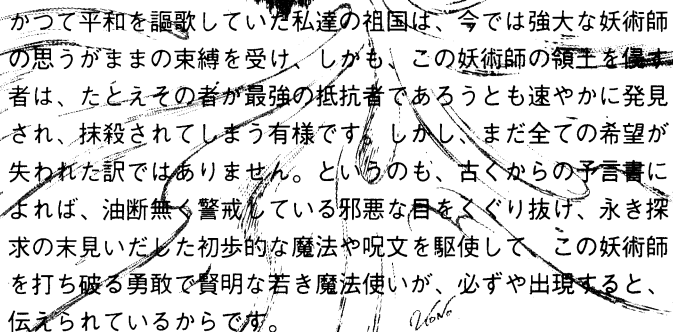 かつて平和を謳歌していた私達の祖国は、今では強大な妖術師
の思うがままの束縛を受け、しかも、この妖術師の領土を侵す
者は、たとえその者が最強の抵抗者であろうとも速やかに発見
され、抹殺されてしまう有様です。しかし、まだ全ての希望が
失われた訳ではありません。というのも、古くからの予言書に
よれば、油断無く警戒している邪悪な目をくぐり抜け、永き探
求の末見いだした初歩的な魔法や呪文を駆使して、この妖術師
を打ち破る勇敢で賢明な若き魔法使いが、必ずや出現すると、
伝えられているからです。